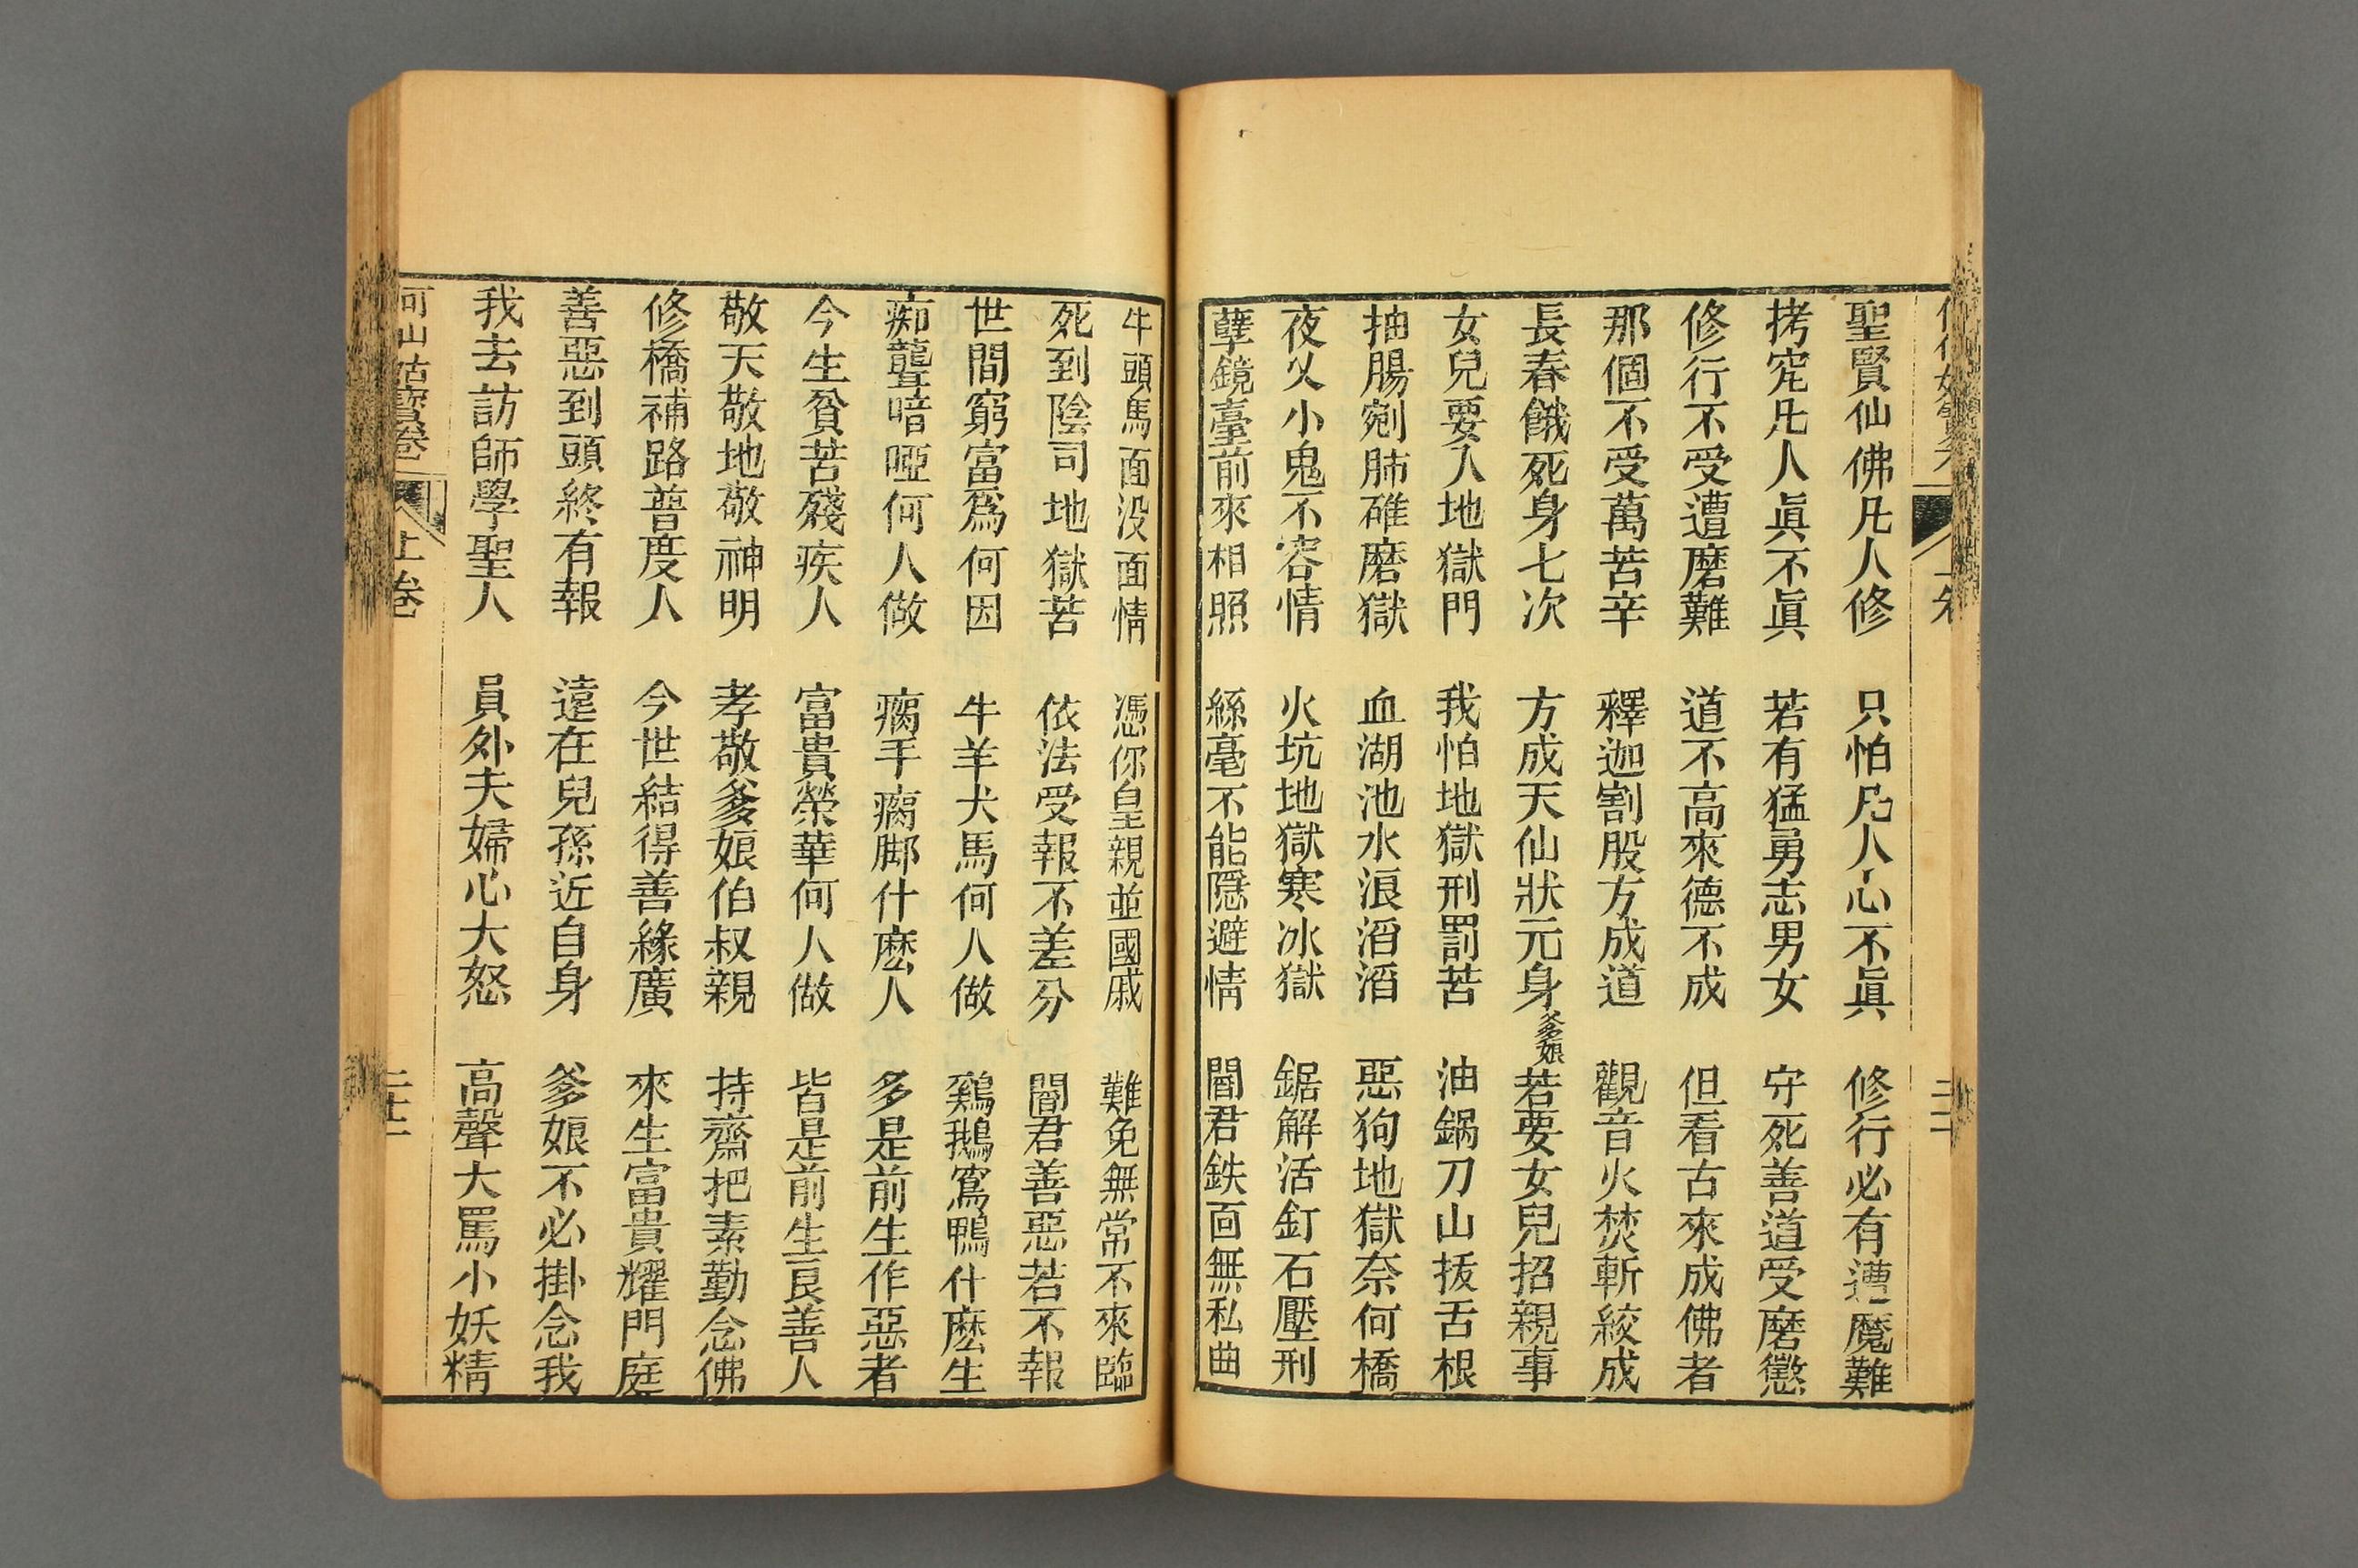 聖賢仙佛凡人修　只怕凡人心不眞　修行必有遭魔難
拷究凡人眞不眞　若有猛勇志男女　守死善道受磨懲
修行不受遭磨難　道不高來德不成　但看古來成佛者
那個不受萬苦辛　釋迦割股方成道　觀音火焚斬絞成
長春餓死身七次　方成天仙狀元身　爹娘若要女兒招親事
女兒要入地獄門　我怕地獄刑罰苦　油鍋刀山拔舌根
抽腸剜肺碓磨獄　血湖池水浪滔滔　惡狗地獄奈何橋
夜乂小鬼不容情　火坑地獄寒冰獄　鋸解活釘石壓刑
孽鏡臺前來相照　絲毫不能隱避情　閻君鉄面無私曲
牛頭馬面没面情　憑你皇親並國戚　難免無常不來臨
死到陰司地獄苦　依法受報不差分　閻君善惡若不報
世間窮富爲何因　牛羊犬馬何人做　鷄鵝鴛鴨什麽生
痴聾喑啞何人做　瘸手瘸脚什麽人　多是前生作惡者
今生貧苦殘疾人　富貴榮華何人做　皆是前生良善人
敬天敬地敬神明　孝敬爹娘伯叔親　持齋把素勤念佛
修橋補路普度人　今世結得善緣廣　來生富貴耀門庭
善惡到頭終有報　遠在兒孫近自身　爹娘不必掛念我
我去訪師學聖人　員外夫婦心大怒　高聲大罵小妖精
何山姑寶卷　上卷